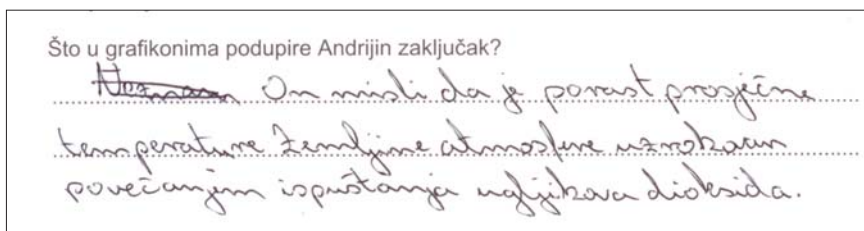 Što u grafikonima podupire Andrijin zaključak?
Neznam On misli da je porast prosječne
temperature Zemljine atmosfere uzrokovan
povećanjem ispuštanja ugljikova dioksida.